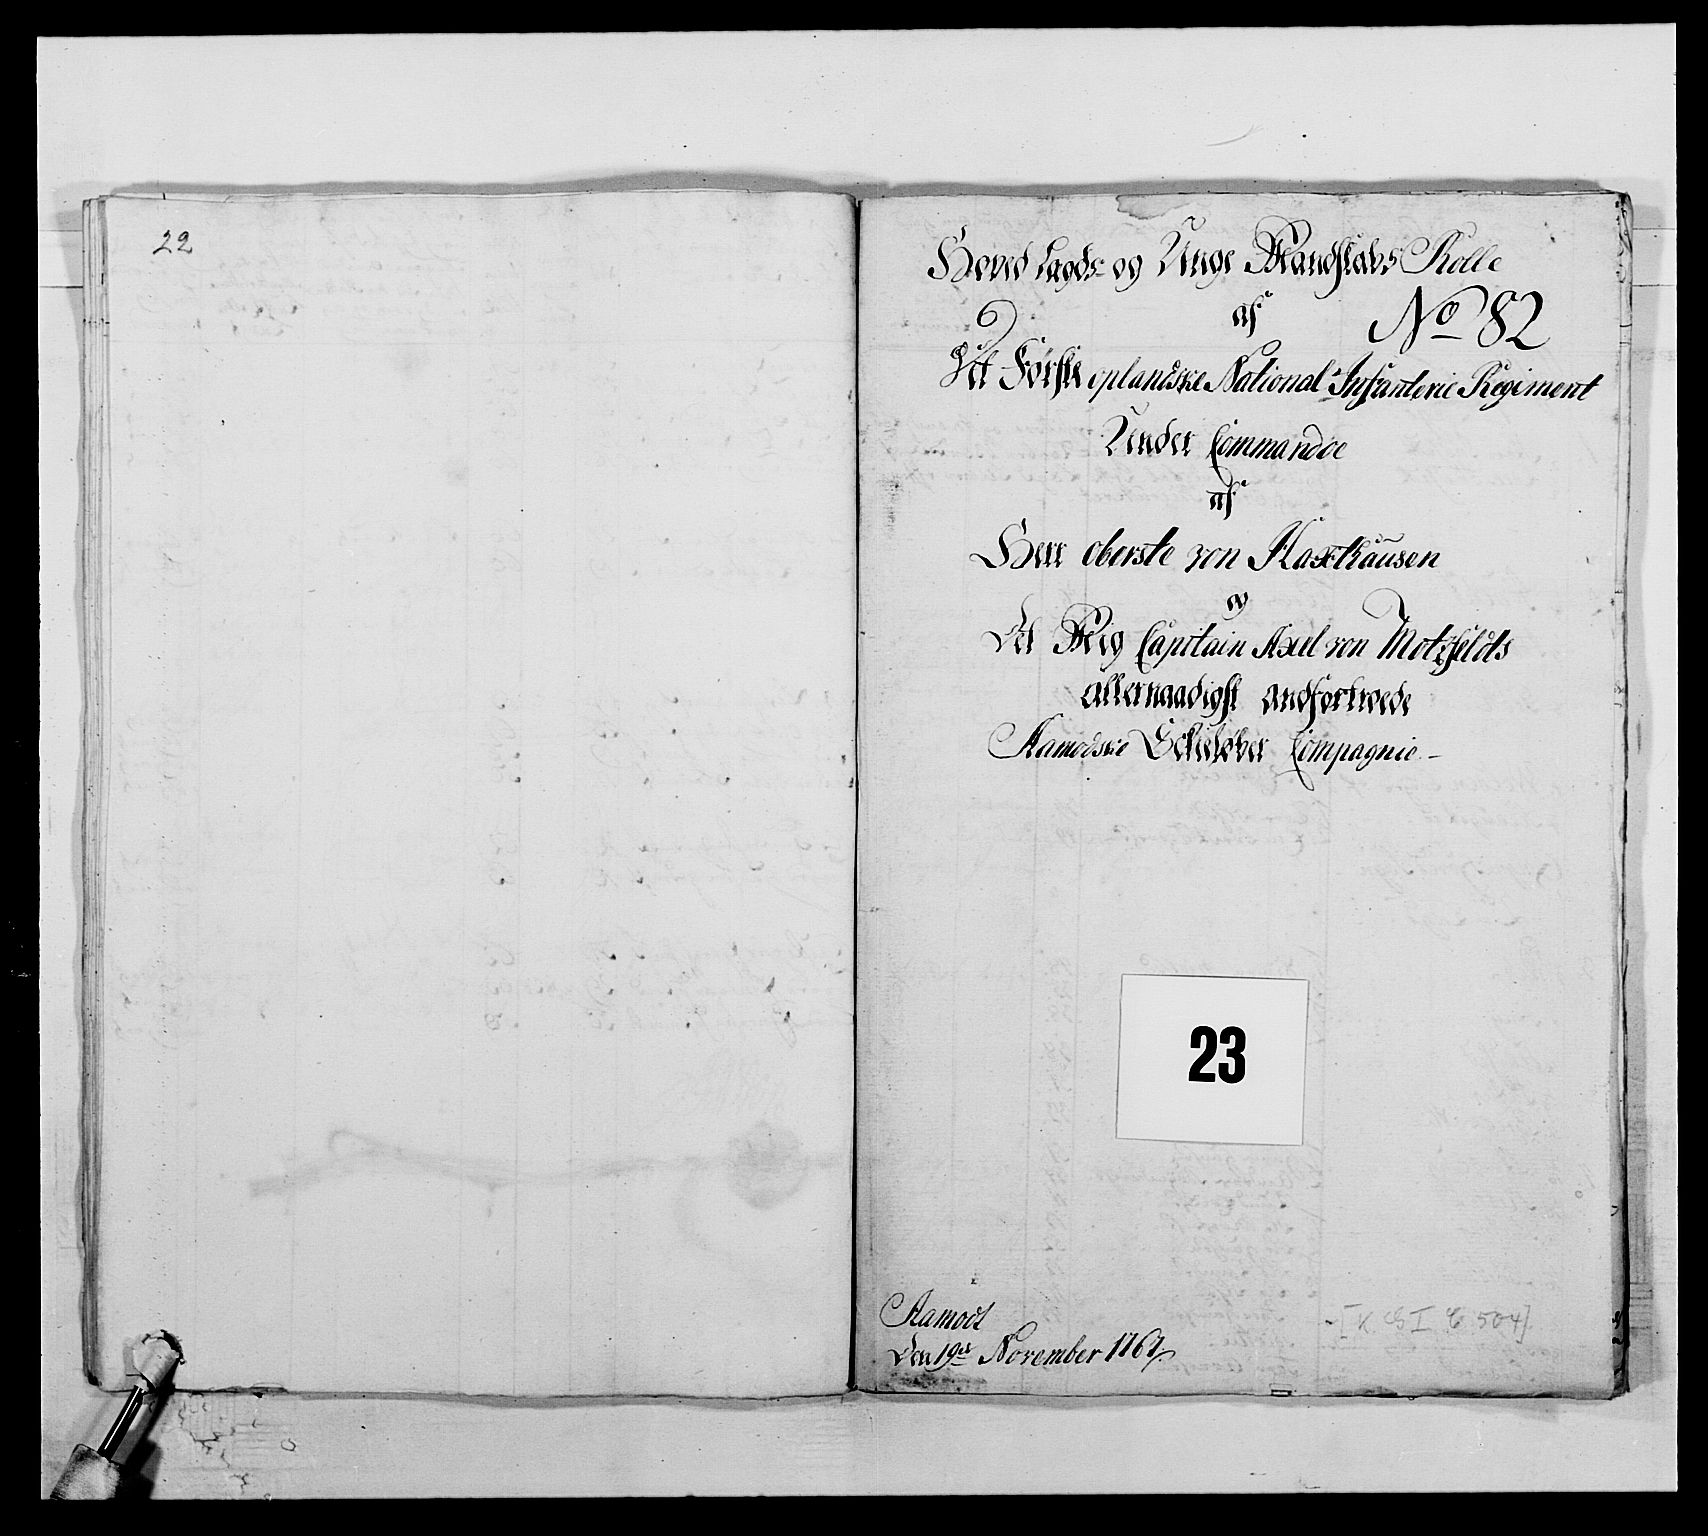 22
Hoved Lægds og Unge Mandskabs Rolle
af No 82
Det Første oplandske National Infanterie Regiment
Under Commandoe
af
Herr oberste von Haxthausen
og
Det Mig Capitain Axel von Motzfeldts
allernaadigst andfortroede
Aamodske Schieløber Compagnie
23
Aamodt
Den 19de November 1767
[K S I C 504]